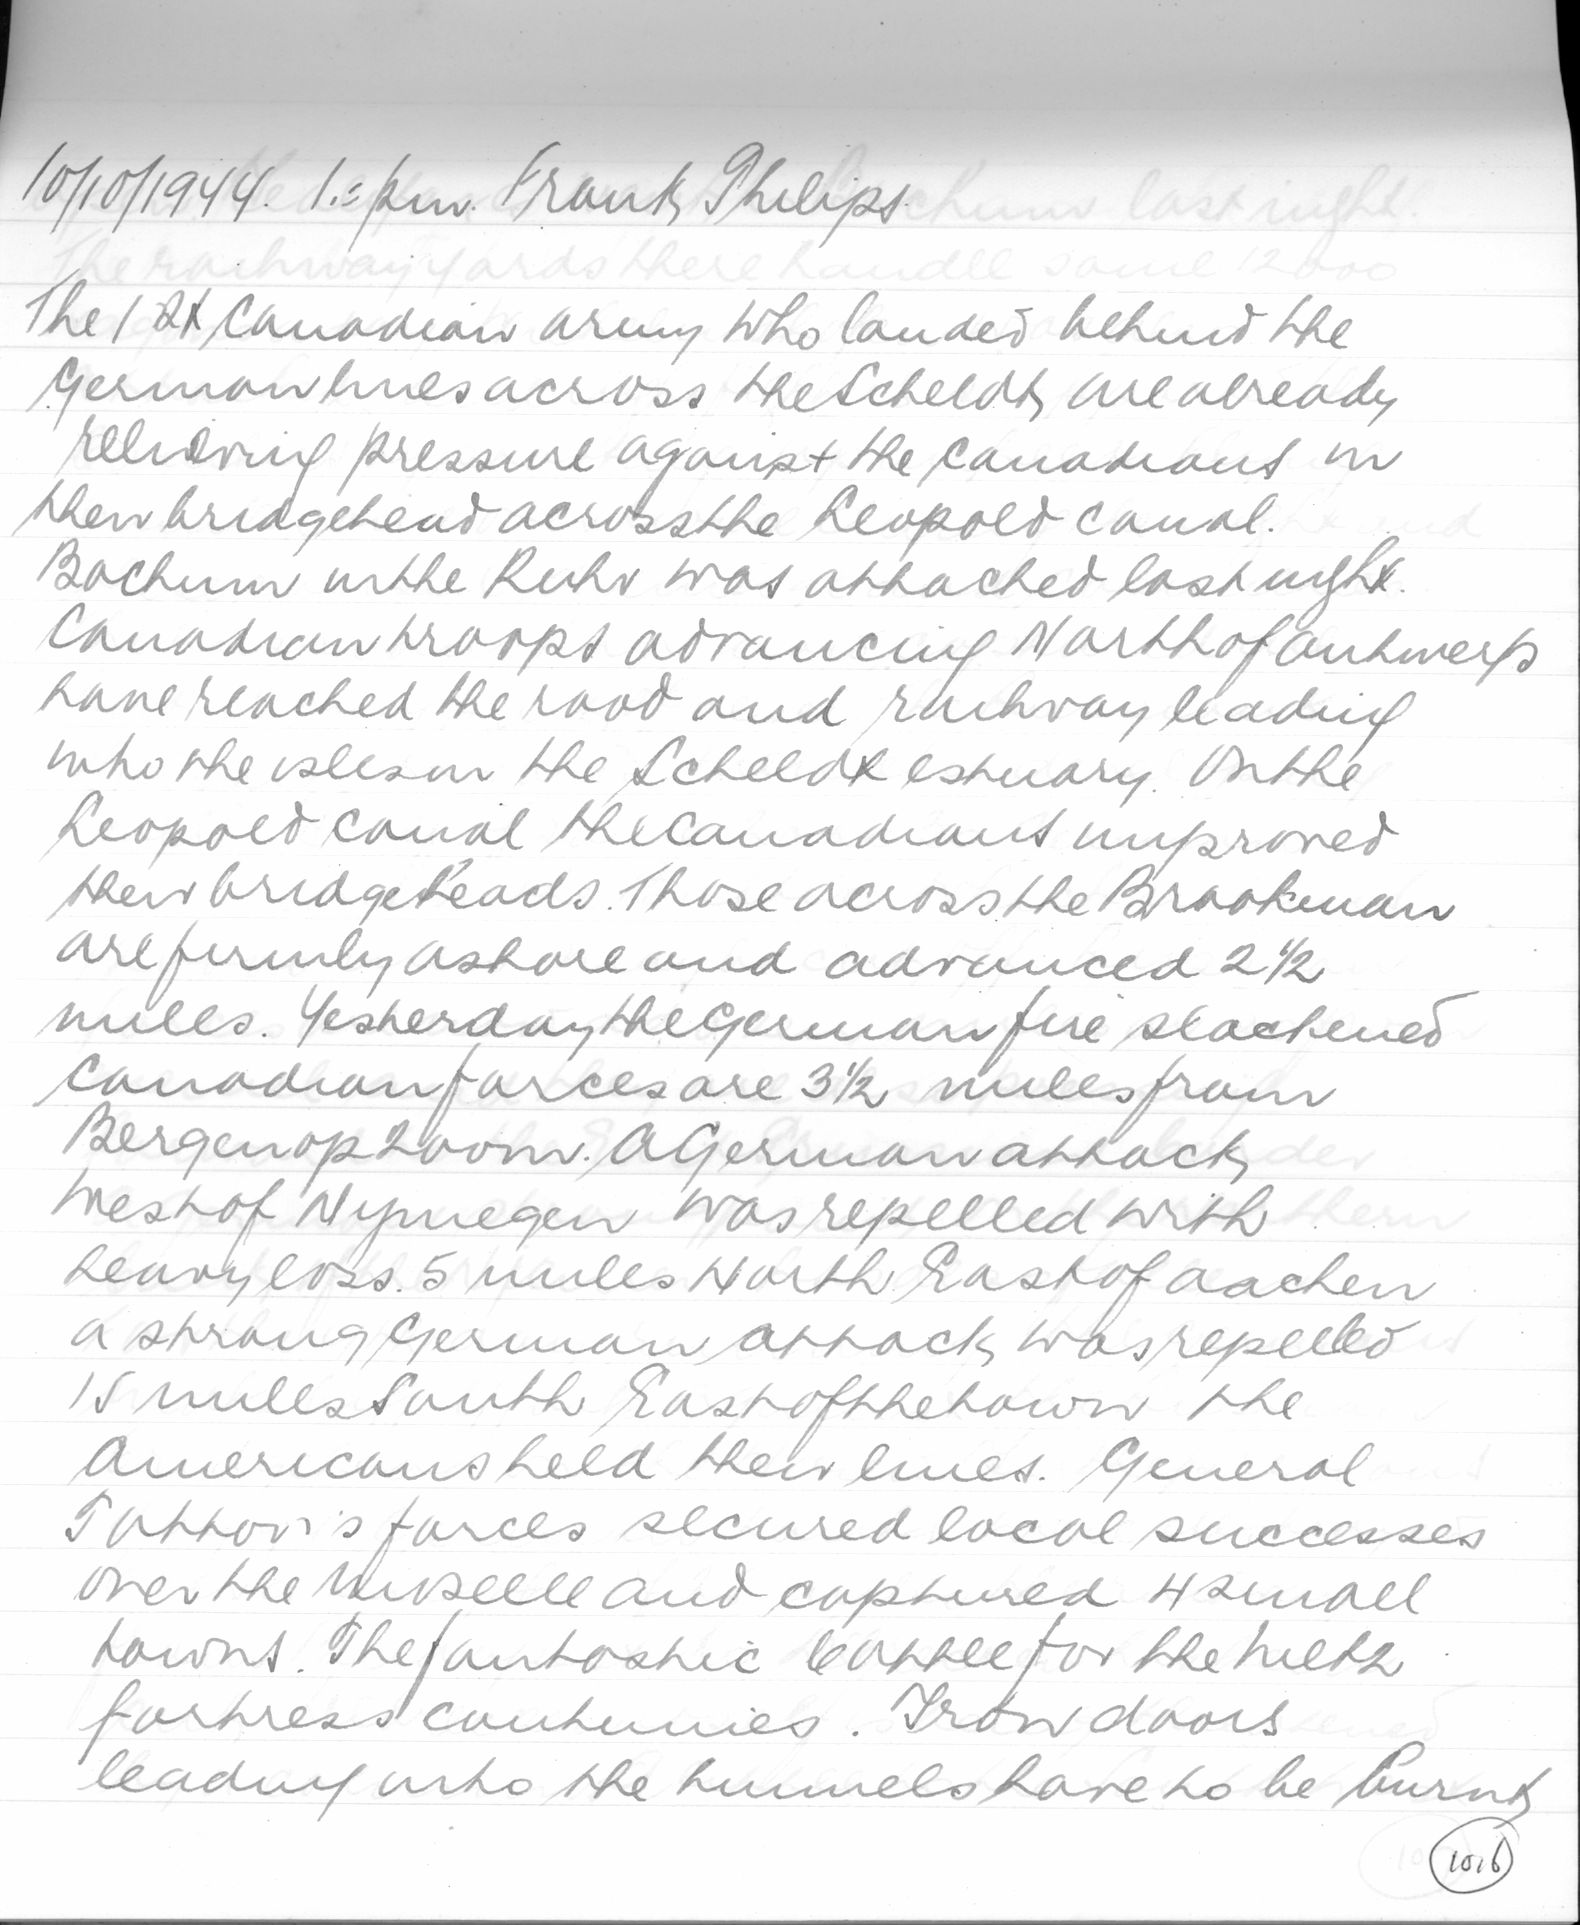 10/10/1944. 1.= pm. Frank Philips.
The 1st Canadian army who landed behind the
German lines across the Scheldt, are already
relieving pressure against the Canadians in
their bridgehead across the Leopold canal.
Bochum in the Ruhr was attacked last night.
Canadian troops advancing North of Antwerp
have reached the road and railway leading
into the isles in the Scheldt estuary. On the
Leopold canal the Canadians improved
their bridgeheads. Those across the Braakman
are firmly ashore and advanced 2 1/2
miles. Yesterday the German fire slackened
Canadian forces are 3 1/2 miles from
Bergen op Zoom. A German attack
West of Nymegen was repelled with
heavy loss. 5 miles North East of Aachen
a strong German attack was repelled
15 miles South East of the town the
Americans held their lines. General
Patton's forces secured local successes
over the Moselle and captured 4 small
towns. The fantastic battle for the Metz
fortress continues. Iron doors
leading into the tunnels have to be burnt
1016